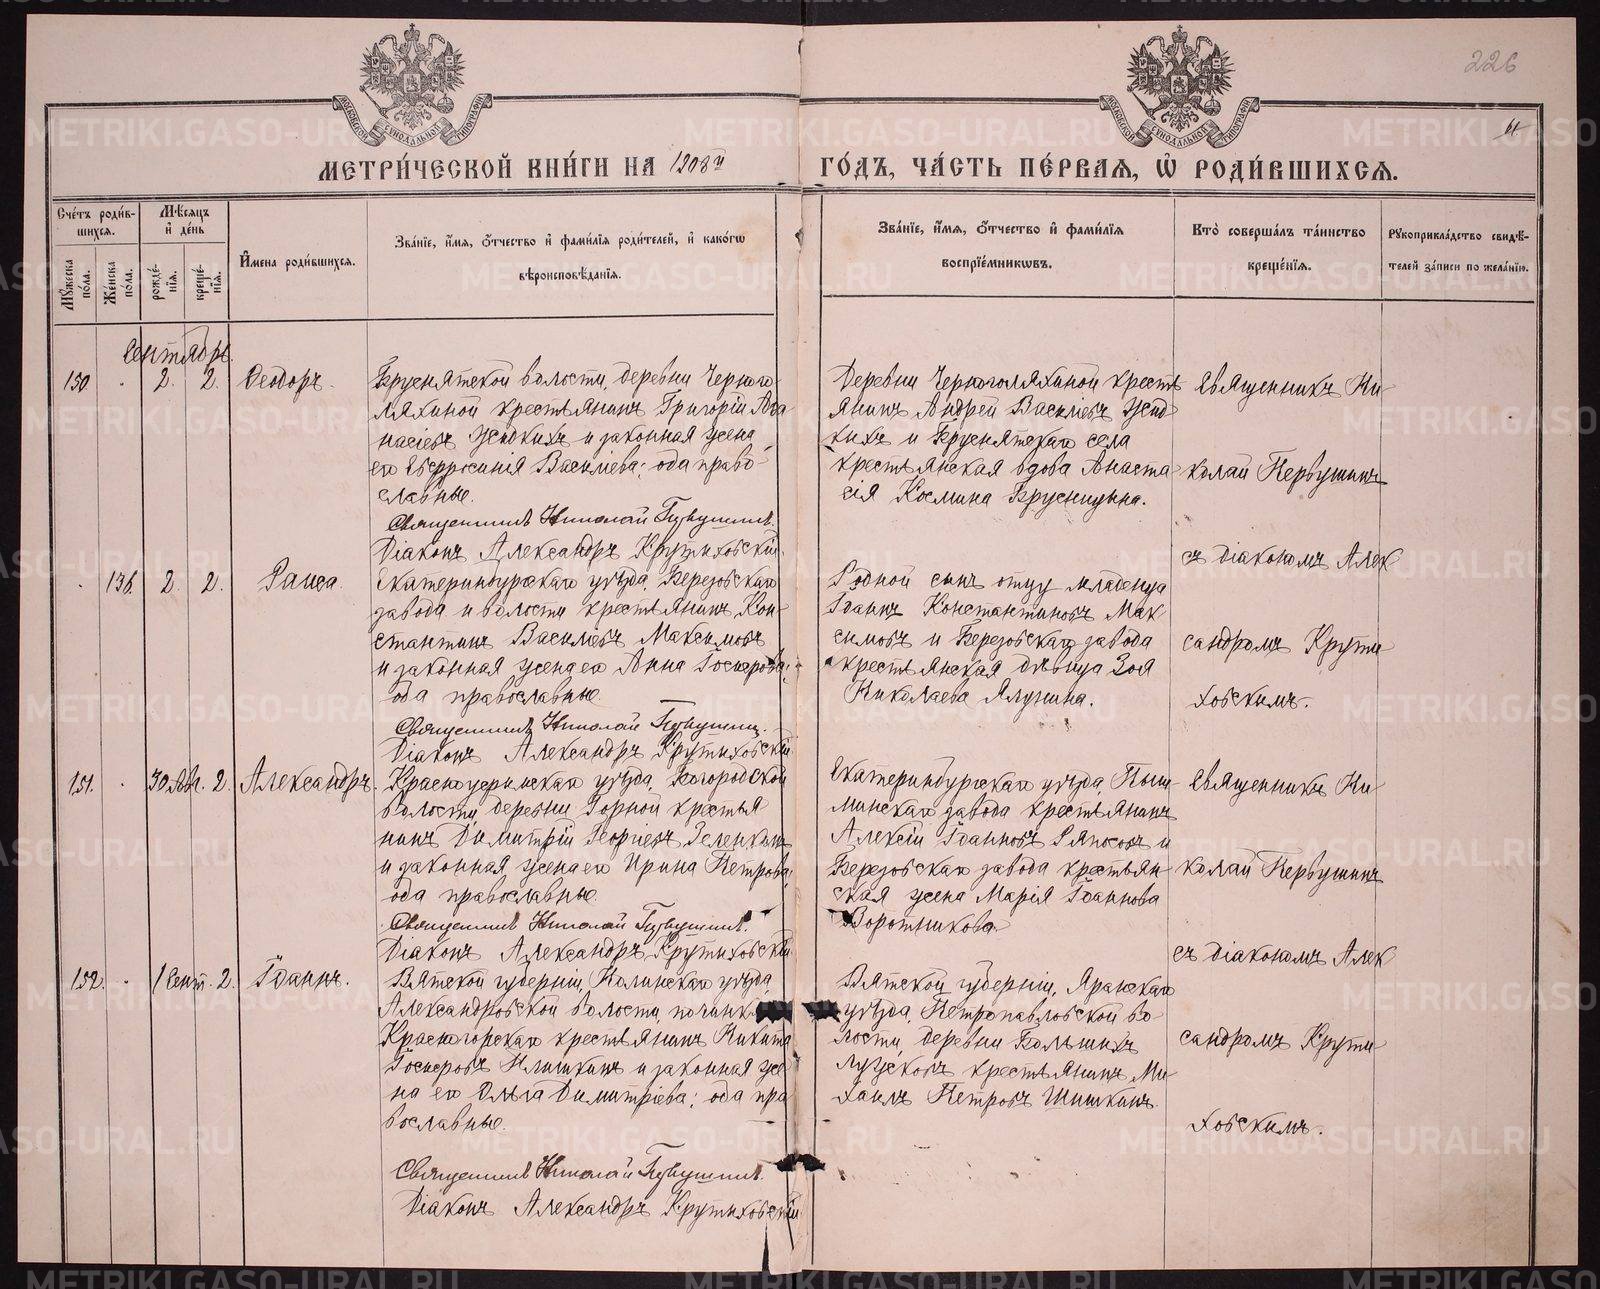 226
11
МЕТРИ́ЧЕСКОЙ КНИ́ГИ НА 1908й ГО́ДЪ, ЧА́СТЬ ПЕ́РВАЯ, Ѡ РОДИ́ВШИХСЯ.
Сче́тъ роди́вшихся.
Мѣ́сяцъ и де́нь
И́мена роди́вшихся.
Зва́нїе, и́мя, о́тчество и фами́лїя роди́телей, и како́гѡ
вѣроисповѣ́данїя.
Зва́нїе, и́мя, о́тчество и фами́лїя
воспрїе́мникωвъ.
Кто̀ соверша́лъ та́инство
креще́нїя.
Рукоприкла́дство свидѣ́-
телей за́писи по жела́нїю.
Му́жеска по́ла.
Же́нска по́ла.
рожде́нїя.
креще́нїя.
Сентябрь.
150. 2. 2. Ѳеодоръ.
Бруснятской волости, деревни Черного-
ляхиной крестьянинъ Григорій Аѳа-
насіевъ Усть­кихъ и законная жена
его Евфросинія Василіева; оба право-
славные.
Священникъ Николай Первушинъ.
Діаконъ Александръ Крутиховскій.
Деревни Черноголяхиной кресть-
янинъ Андрей Василіевъ
и Бруснятскаго села
крестьянская вдова Анаста-
сія Космина Брусницына.
Священникъ Ни-
колай Первушинъ
съ діакономъ Алек-
сандромъ Крути-
ховскимъ.
136. 2. 2. Раиса.
Екатеринбургскаго уѣзда, Березовскаго
завода и волости крестьянинъ Кон-
стантинъ Василіевъ Максимовъ
и законная жена его Анна Іосифова;
оба православные.
Священникъ Николай Первушинъ.
Діаконъ Александръ Крутиховскій
Родной сынъ отцу младенца
Іоаннъ Константиновъ Мак-
симовъ и Березовскаго завода
крестьянская дѣвица Зоя
Николаева Ялунина.
151. 30 Авг. 2. Александръ.
Красноуфимскаго уѣзда, Богородской
волости, деревни Горной крестья-
нинъ Димитрій Георгіевъ Зеленкинъ
и законная жена его Ирина Петрова;
оба православные.
Священникъ Николай Первушинъ.
Діаконъ Александръ Крутиховскій
Екатеринбургскаго уѣзда, Пыш-
минскаго завода крестьянинъ
Алексій Іоанновъ и
Березовскаго завода крестьян-
ская жена Марія Іоаннова
Воротникова.
Священникъ Ни-
колай Первушинъ
съ діакономъ Алек-
сандромъ Крути-
ховскимъ.
152. 1 Сент. 2. Іоаннъ.
Вятской губерніи, Нолинскаго уѣзда,
Александровской волости, починка
Красногорскаго крестьянинъ Никита
Іосифовъ и законная же-
на его Ольга Димитріева; оба пра-
вославные.
Священникъ Николай Первушинъ.
Діаконъ Александръ Крутиховскій
Вятской губерніи, Яранскаго
уѣзда, Петропавловской во-
лости, деревни Большихъ
крестьянинъ Ми-
хаилъ Петровъ Шишкинъ.